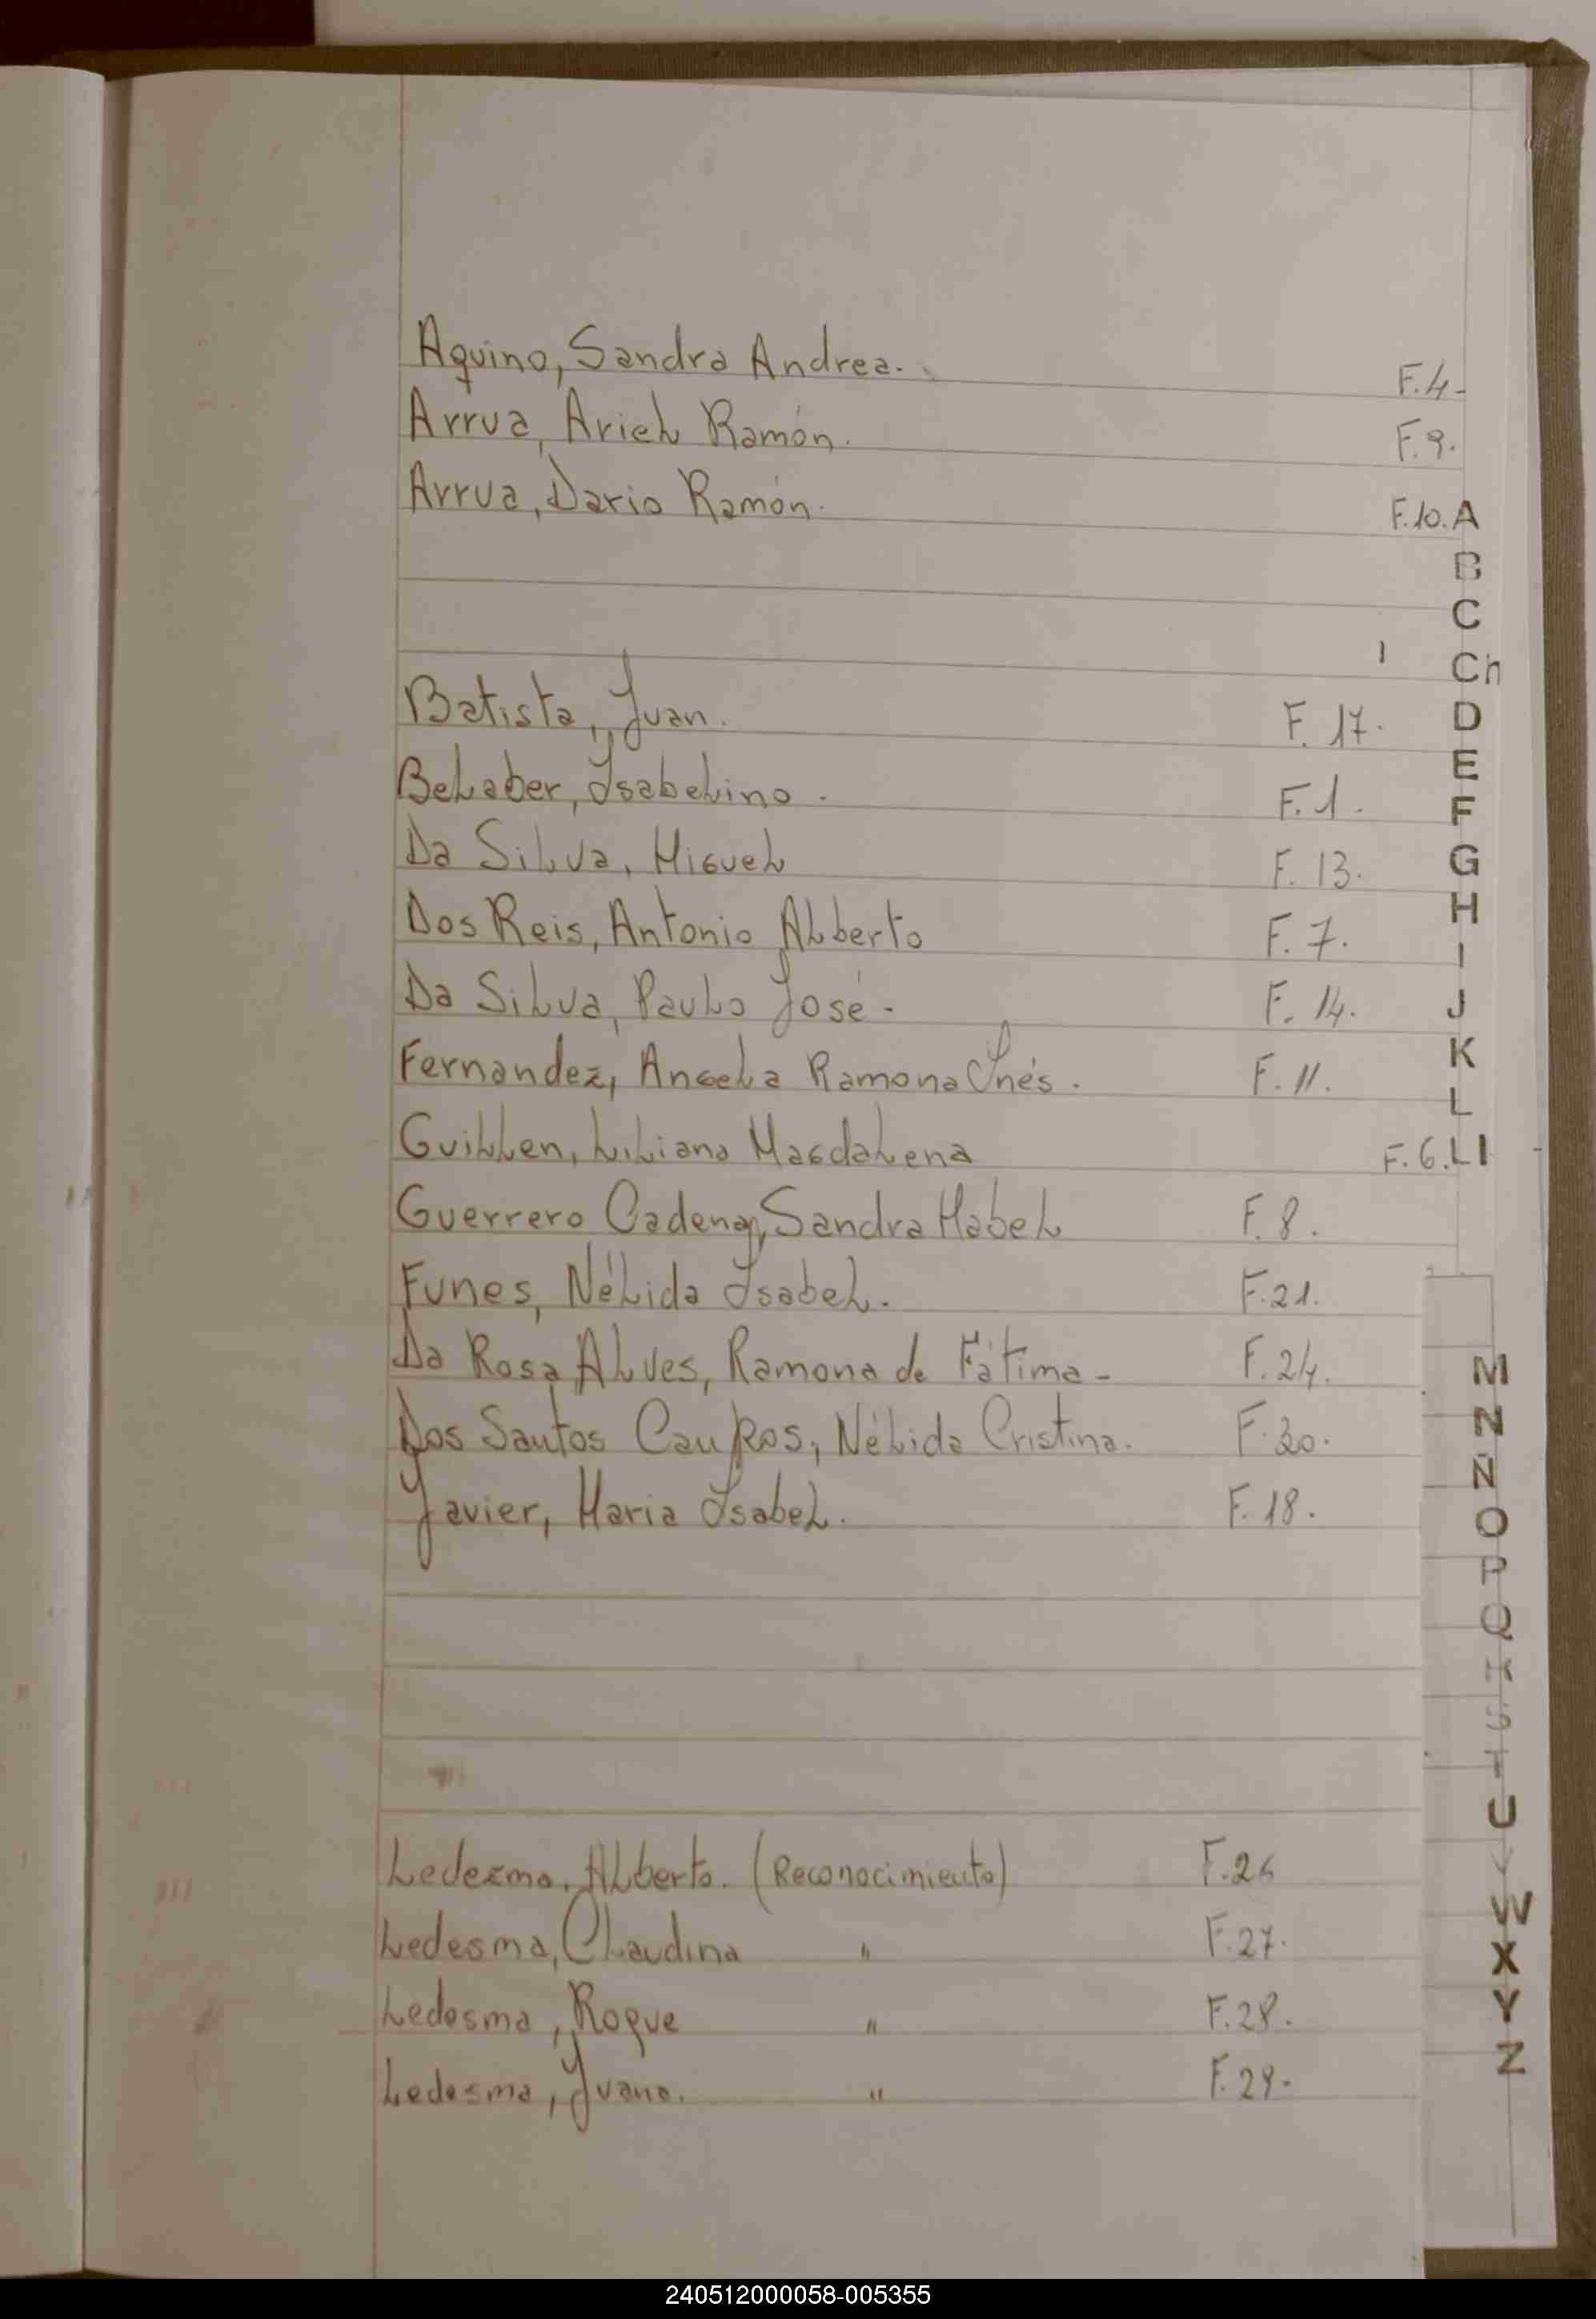 Aquino, Sandra Andrea. F.4-
Arrua, Ariel Ramón. F.9.
Arrua, Dario Ramón. F.10. A
B
C
Ch
Batista, Juan. F. 17. D
E
Belaber, Isabelino. F.1. F
Da Silva, Miguel F. 13. G
H
Dos Reis, Antonio Alberto F. 7. I
Da Silva, Paulo José- F. 14. J
K
Fernandez, Angela Ramona Inés. F. 11. L
Guillen, Liliana Magdalena F. 6. Ll
Guerrero Cadena, Sandra Mabel F. 8.
Funes, Nélida Isabel. F.21.
Da Rosa Alves, Ramona de Fátima- F.24. M
Dos Santos Campos, Nélida Cristina. F.20. N
Ñ
Javier, Maria Isabel. F.18. O
P
Q
R
S
T
U
Ledezma, Alberto. (Reconocimiento) F.26
V
W
Ledesma, Claudina " F.27. X
Ledesma, Roque " F.28. Y
Z
Ledesma, Juana. " F.29-
240512000058-005355